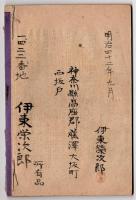 明治四十二年九月
伊東榮次郎
神奈川縣高座郡藤澤大坂町
西坂戸
一四二二番地
伊東榮次郎
所有品